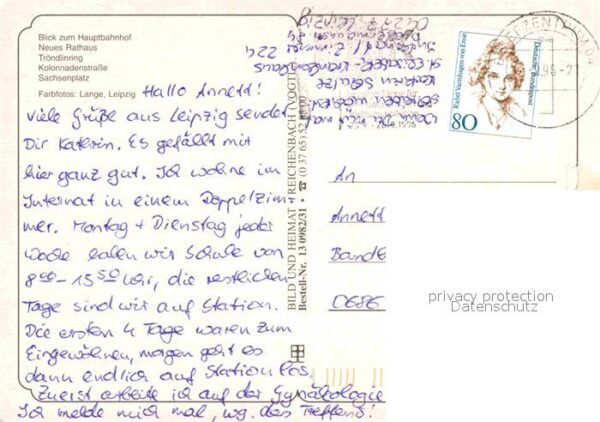 Blick zum Hauptbahnhof
Neues Rathaus
Tröndlinring
Kolonnadenstraße
Sachsenplatz
Farbfotos: Lange, Leipzig
Hallo Annett!
viele Grüße aus Leipzig sendet
Dir Katerin. Es gefällt mir
hier ganz gut. Ich wohne im
Internat in einem Doppelzim-
mer. Montag + Dienstag jeder
Woche haben wir Schule von
8⁰⁰-15⁵⁰ Uhr, die restlichen
Tage sind wir auf Station.
Die ersten 4 Tage waren zum
Eingewöhnen, morgen geht es
dann endlich auf Station los.
Zuerst arbeite ich auf der Gynäkologie
Ich melde mich mal, wg. des Treffens!
Wenn Du mir mal
schreiben möchtest:
Katerin Schulze
St. Elisabeth-Krankenhaus
Internat / Zimmer 224
04277 Leipzig
BILD UND HEIMAT • REICHENBACH (VOGTL)
Bestell-Nr. 13 0982/31 • ☎ (0 37 65) 52
Deutsche Bundespost
Rahel Varnhagen von Ense
80
An
Annett
Bande
0686
privacy protection
Datenschutz